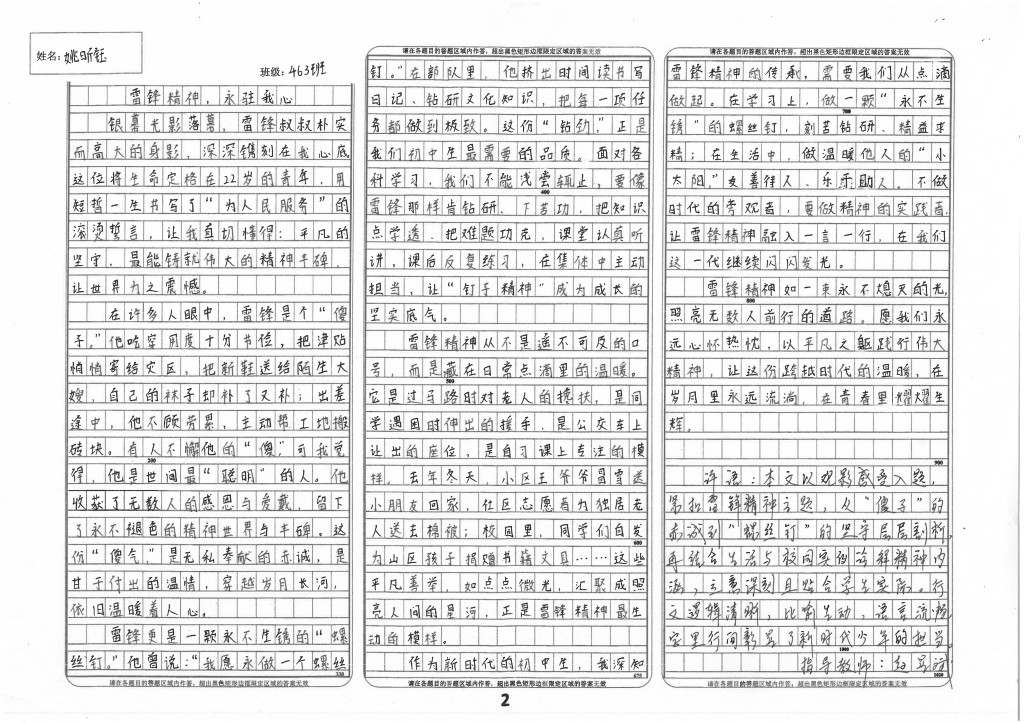 姓名：姚昕钰
班级：463班
雷锋精神，永驻我心
银幕光影落幕，雷锋叔叔朴实
而高大的身影，深深镌刻在我心底
这位将生命定格在22岁的青年，用
短暂一生书写了“为人民服务”的
滚烫誓言，让我真切懂得：平凡的
坚守，最能铸就伟大的精神丰碑，
让世界为之震憾。
在许多人眼中，雷锋是个“傻
子。”他吃穿用度十分节俭，把津贴
悄悄寄给灾区，把新鞋送给陌生大
嫂，自己的袜子却补了又补；出差
途中，他不顾劳累，主动帮工地搬
砖块。有人不懈他的“傻”，可我觉
得，他是世间最“聪明”的人。他
收获了无数人的感恩与爱戴，留下
200
了永不褪色的精神世界与丰碑。这
份“傻气”，是无私奉献的赤诚，是
甘于付出的温情，穿越岁月长河，
依旧温暖着人心。
雷锋更是一颗永不生锈的“螺
丝钉。”他曾说：“我愿永做一个螺丝
330
请在各题目的答题区域内作答，超出黑色矩形边框限定区域的答案无效
请在各题目的答题区域内作答，超出黑色矩形边框限定区域的答案无效
钉。”在部队里，他挤出时间读书写
日记、钻研文化知识，把每一项任
务都做到极致。这份“钻劲，”正是
我们初中生最需要的品质。面对各
科学习，我们不能浅尝辄止，要像
400
雷锋那样肯钻研、下苦功，把知识
点学透、把难题功克，课堂认真听
讲，课后反复练习，在集体中主动
担当，让“钉子精神”成为成长的
坚实底气。
雷锋精神从不是遥不可及的口
号，而是藏在日常点滴里的温暖。
500
它是过马路时对老人的搀扶，是同
学遇困时伸出的援手，是公交车上
让出的座位，是自习课上专注的模
样。去年冬天，小区王爷爷冒雪送
小朋友回家，社区志愿者为独居老
人送去棉被；校园里，同学们自发
600
为山区孩子捐赠书籍文具……这些
平凡善举，如点点微光，汇聚成照
亮人间的星河，正是雷锋精神最生
动的模样。
作为新时代的初中生，我深知
675
请在各题目的答题区域内作答，超出黑色矩形边框限定区域的答案无效
请在各题目的答题区域内作答，超出黑色矩形边框限定区域的答案无效
雷锋精神的传承，需要我们从点滴
做起。在学习上，做一颗“永不生
700
锈”的螺丝钉，刻苦钻研、精益求
精；在生活中，做温暖他人的“小
太阳，”友善待人、乐于助人。不做
时代的旁观者，要做精神的实践者，
让雷锋精神融入一言一行，在我们
这一代继续闪闪发光。
雷锋精神如一束永不熄灭的光，
800
照亮无数人前行的道路。愿我们永
远心怀热忱，以平凡之躯践行伟大
精神，让这份跨越时代的温暖，在
岁月里永远流淌，在青春里熠耀生
辉。
900
评语：本文以观影感受入题，
紧扣雷锋精神主题，从“傻子”的
赤诚到“螺丝钉”的坚守层层剖析
再结合生活与校园实例诠释精神内
涵，立意深刻且贴合学生实际。行
文逻辑清晰，比喻生动，语言流畅
字里行间彰显了新时代少年的担当
1000
指导教师：
1020
请在各题目的答题区域内作答，超出黑色矩形边框限定区域的答案无效
2